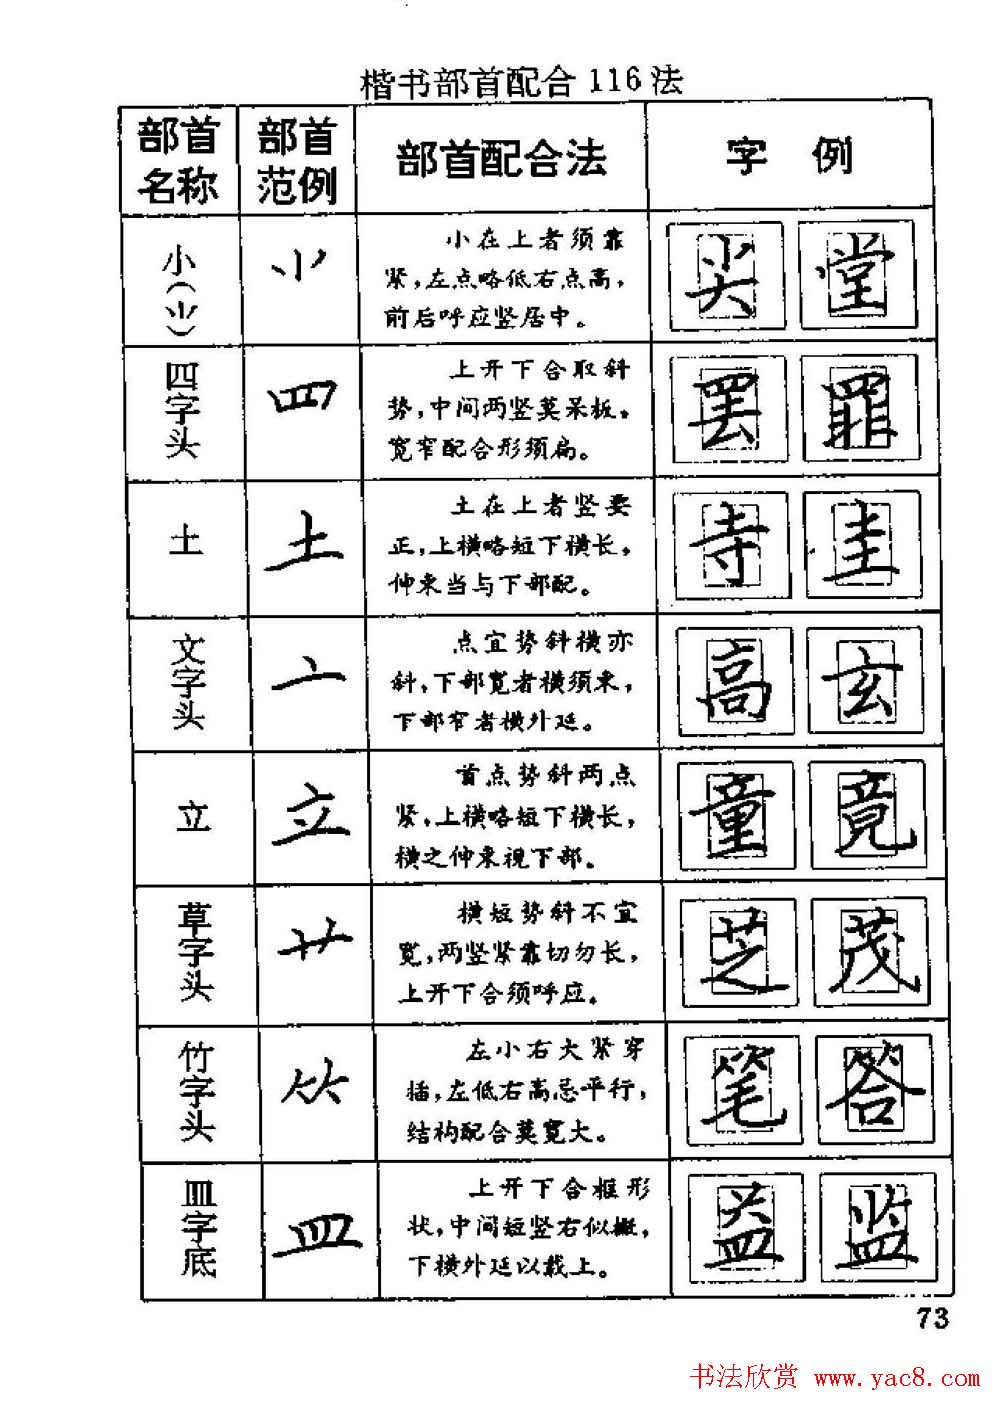 楷书部首配合116法
部首名称 部首范例 部首配合法 字 例
小(⺌) ⺌ 小在上者须靠
紧,左点略低右点高,
前后呼应竖居中。
尖 堂
四字头 罒 上开下合取斜
势,中间两竖莫呆板。
宽窄配合形须扁。
罢 罪
土 土 土在上者竖要
正,上横略短下横长。
伸来当与下部配。
寺 圭
文字头 亠 点宜势斜横亦
斜,下部宽者横须束,
下部窄者横外延。
高 玄
立 立 首点势斜两点
紧,上横略短下横长,
横之伸束视下部。
童 竟
草字头 艹 横短势斜不宜
宽,两竖紧靠切勿长,
上开下合须呼应。
芝 茂
竹字头 ⺮ 左小右大紧穿
插,左低右高忌平行,
结构配合莫宽大。
笔 答
皿字底 皿 上开下合框形
状,中间短竖右似撇,
下横外延以载上。
益 监
73
书法欣赏 www.yac8.com